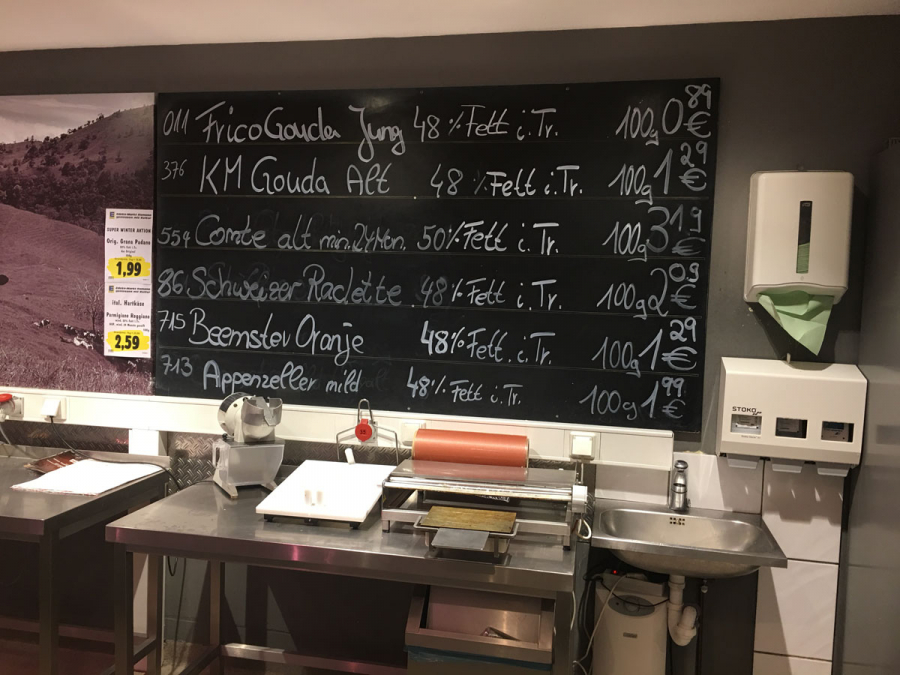 011 Frico Gouda Jung 48% Fett i.Tr. 100g 0 89 €
376 KM Gouda Alt 48% Fett i.Tr. 100g 1 29 €
554 Comte alt min. 24 Mon. 50% Fett i.Tr. 100g 3 19 €
86 Schweizer Raclette 48% Fett i.Tr. 100g 2 09 €
715 Beemster Oranje 48% Fett i.Tr. 100g 1 29 €
713 Appenzeller mild 48% Fett i.Tr. 100g 1 99 €
SUPER WINTER AKTION
Orig. Grana Padano
1,99
ital. Hartkäse
Parmigiano Reggiano
2,59
STOKO